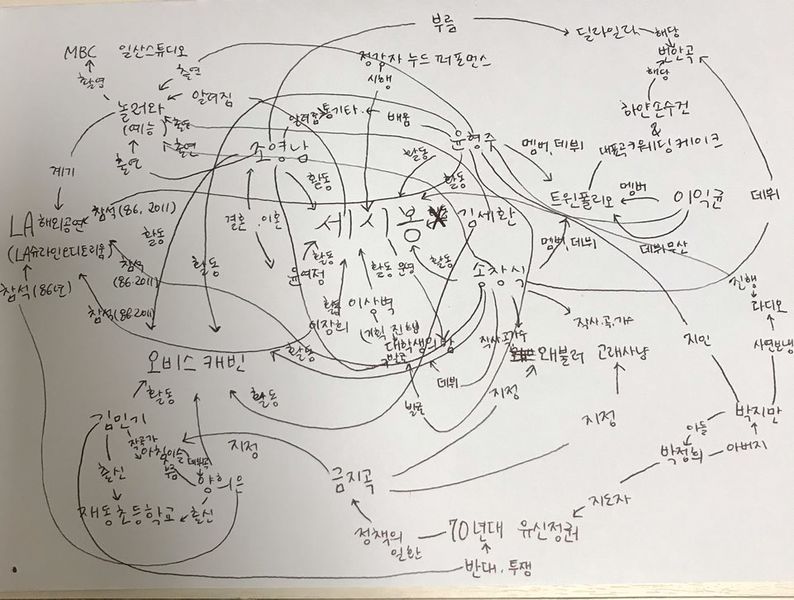 부름
딜라일라
해당
번안곡
해당
MBC 일산스튜디오
정강자 누드 퍼포먼스
시행
출연
촬영
놀러와
(예능)
알려짐
출연
출연
출연
통기타
배움
조영남
윤형주
멤버, 데뷔
하얀손수건
&
대표곡
웨딩케이크
트윈폴리오
멤버
이익균
데뷔
데뷔무산
계기
LA 해외공연
(LA슈라인오디토리움)
참석(86, 2011)
참석(86년)
참석
(86.2011)
참석(86.2011)
활동
활동
활동
활동
활동
결혼, 이혼
세시봉
김세환
윤여정
활동
활동
운영
활동
송창식
멤버, 데뷔
이장희
이상벽
기획, 진행
대학생의 밤
발굴
데뷔
작사.곡.가수
왜불러
고래사냥
지정
지정
진행
라디오
사연보냄
지인
박지만
아들
아버지
박정희
지도자
오비스 캐빈
활동
활동
활동
김민기
작곡가
아침이슬
부름
양희은
출신
재동초등학교
출신
지정
금지곡
정책의
일환
70년대 유신정권
반대.투쟁